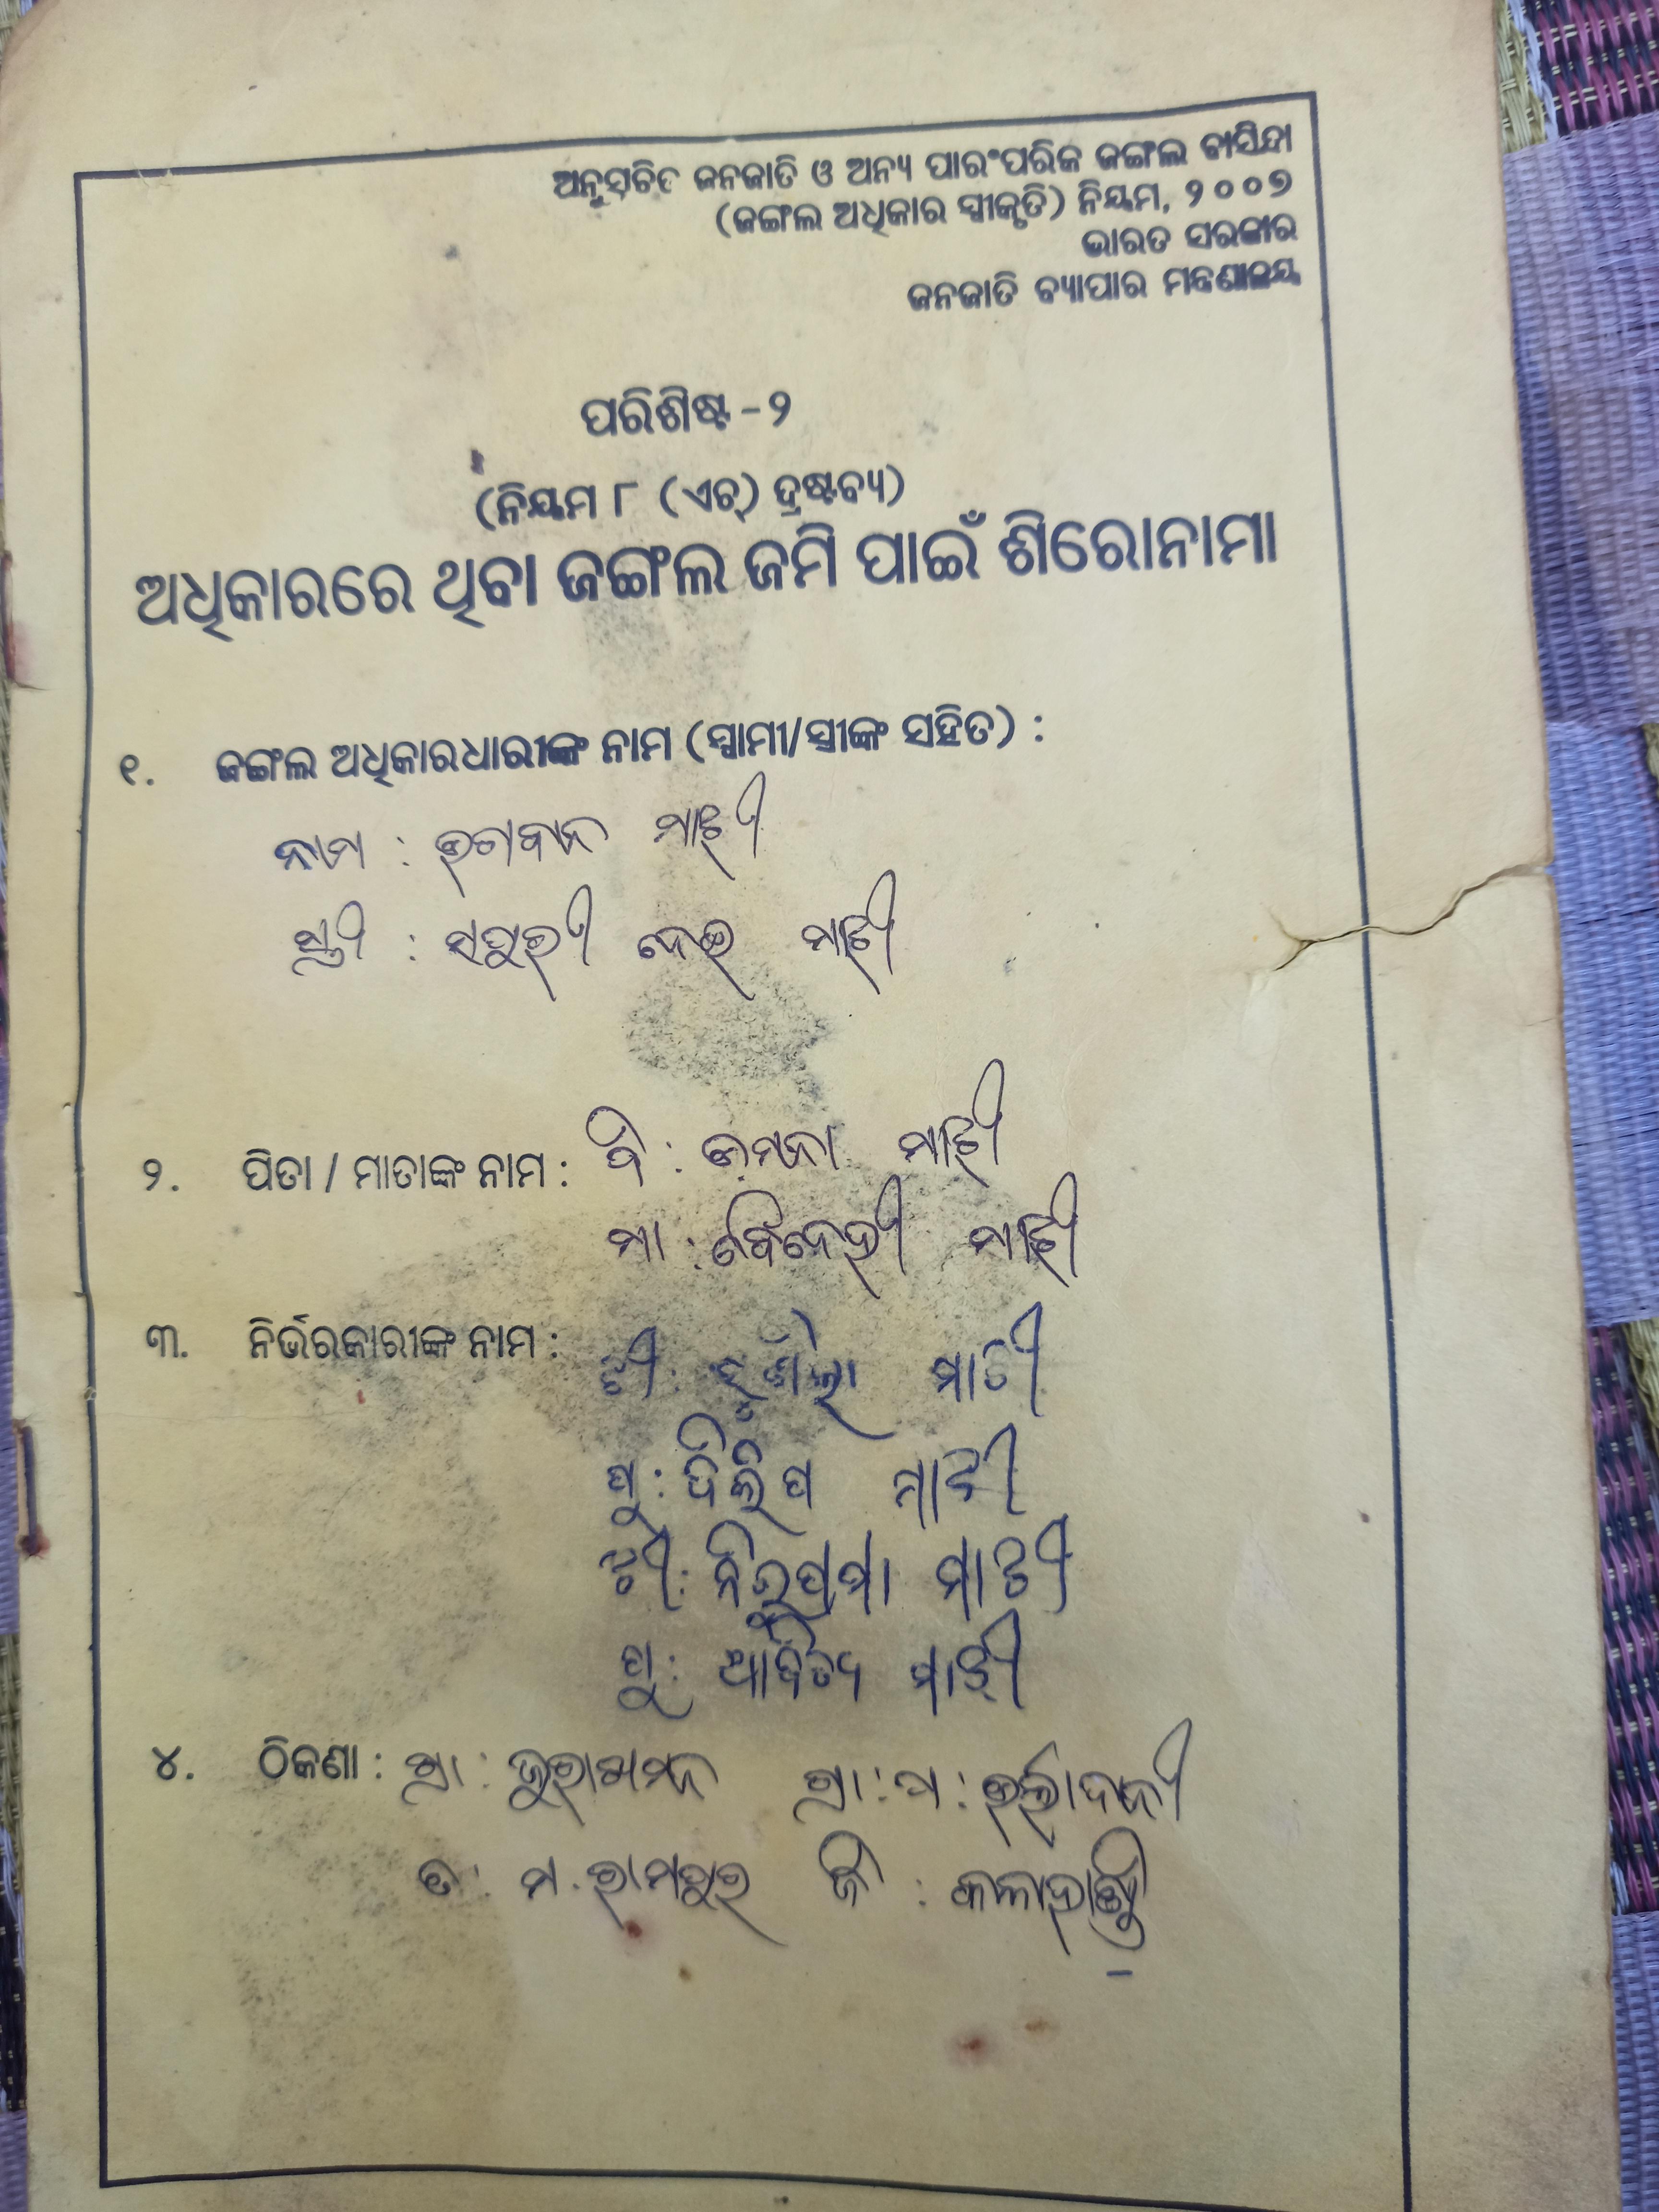 ଅନୁସୂଚିତ ଜନଜାତି ଓ ଅନ୍ୟ ପାରଂପରିକ ଜଙ୍ଗଲ ବାସିନ୍ଦା
(ଜଙ୍ଗଲ ଅଧିକାର ସ୍ୱୀକୃତି) ନିୟମ, ୨୦୦୭
ଭାରତ ସରକାର
ଜନଜାତି ବ୍ୟାପାର ମନ୍ତ୍ରଣାଳୟ
ପରିଶିଷ୍ଟ - ୨
(ନିୟମ ୮ (ଏଚ୍) ଦ୍ରଷ୍ଟବ୍ୟ)
ଅଧିକାରରେ ଥିବା ଜଙ୍ଗଲ ଜମି ପାଇଁ ଶିରୋନାମା
୧. ଜଙ୍ଗଲ ଅଧିକାରଧାରୀଙ୍କ ନାମ (ସ୍ୱାମୀ/ସ୍ତ୍ରୀଙ୍କ ସହିତ) :
ନାମ : ଭଗବାନ ମାଝୀ
ସ୍ତ୍ରୀ : ସପୁରୀ ଦେଇ ମାଝୀ
୨. ପିତା / ମାତାଙ୍କ ନାମ : ପି : ମାଝୀ
ମା : ମାଝୀ
୩. ନିର୍ଭରକାରୀଙ୍କ ନାମ : ଝୀ : ମାଝୀ
ପୁ : ଦିଲିପ ମାଝୀ
ଝୀ : ନିରୁପମା ମାଝୀ
ପୁ : ଆଦିତ୍ୟ ମାଝୀ
୪. ଠିକଣା : ଗ୍ରା : ଗ୍ରା : ପ :
ତ : ମ. ରାମପୁର ଜି : କଳାହାଣ୍ଡି